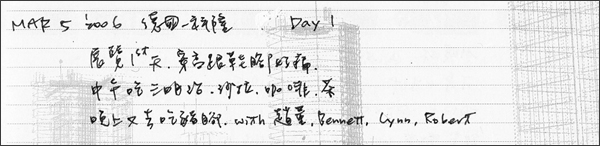 MAR 5 2006 德國-科隆 Day 1
展覽1st天.穿高跟鞋腳好痛.
中午吃三明治.沙拉.咖啡.茶
晚上又去吃豬腳. with 趙董, Bennett, Lynn, Robert